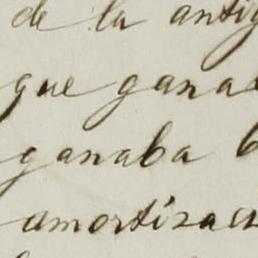 de la antig
que gana
ganaba
amortizac